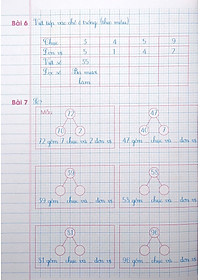 Bài 6 Viết tiếp vào chỗ trống (theo mẫu)
Chục 5 4 5 9
Đơn vị 5 1 4 2
Viết số 55
Đọc số Năm mươi lăm
Bài 7 Số
Mẫu 72 47
70 2 40 7
72 gồm 7 chục và 2 đơn vị 47 gồm ... chục và ... đơn vị
39 55
39 gồm ... chục và ... đơn vị 55 gồm ... chục và ... đơn vị
51 98
51 gồm ... chục và ... đơn vị gồm ... chục và ... đơn vị